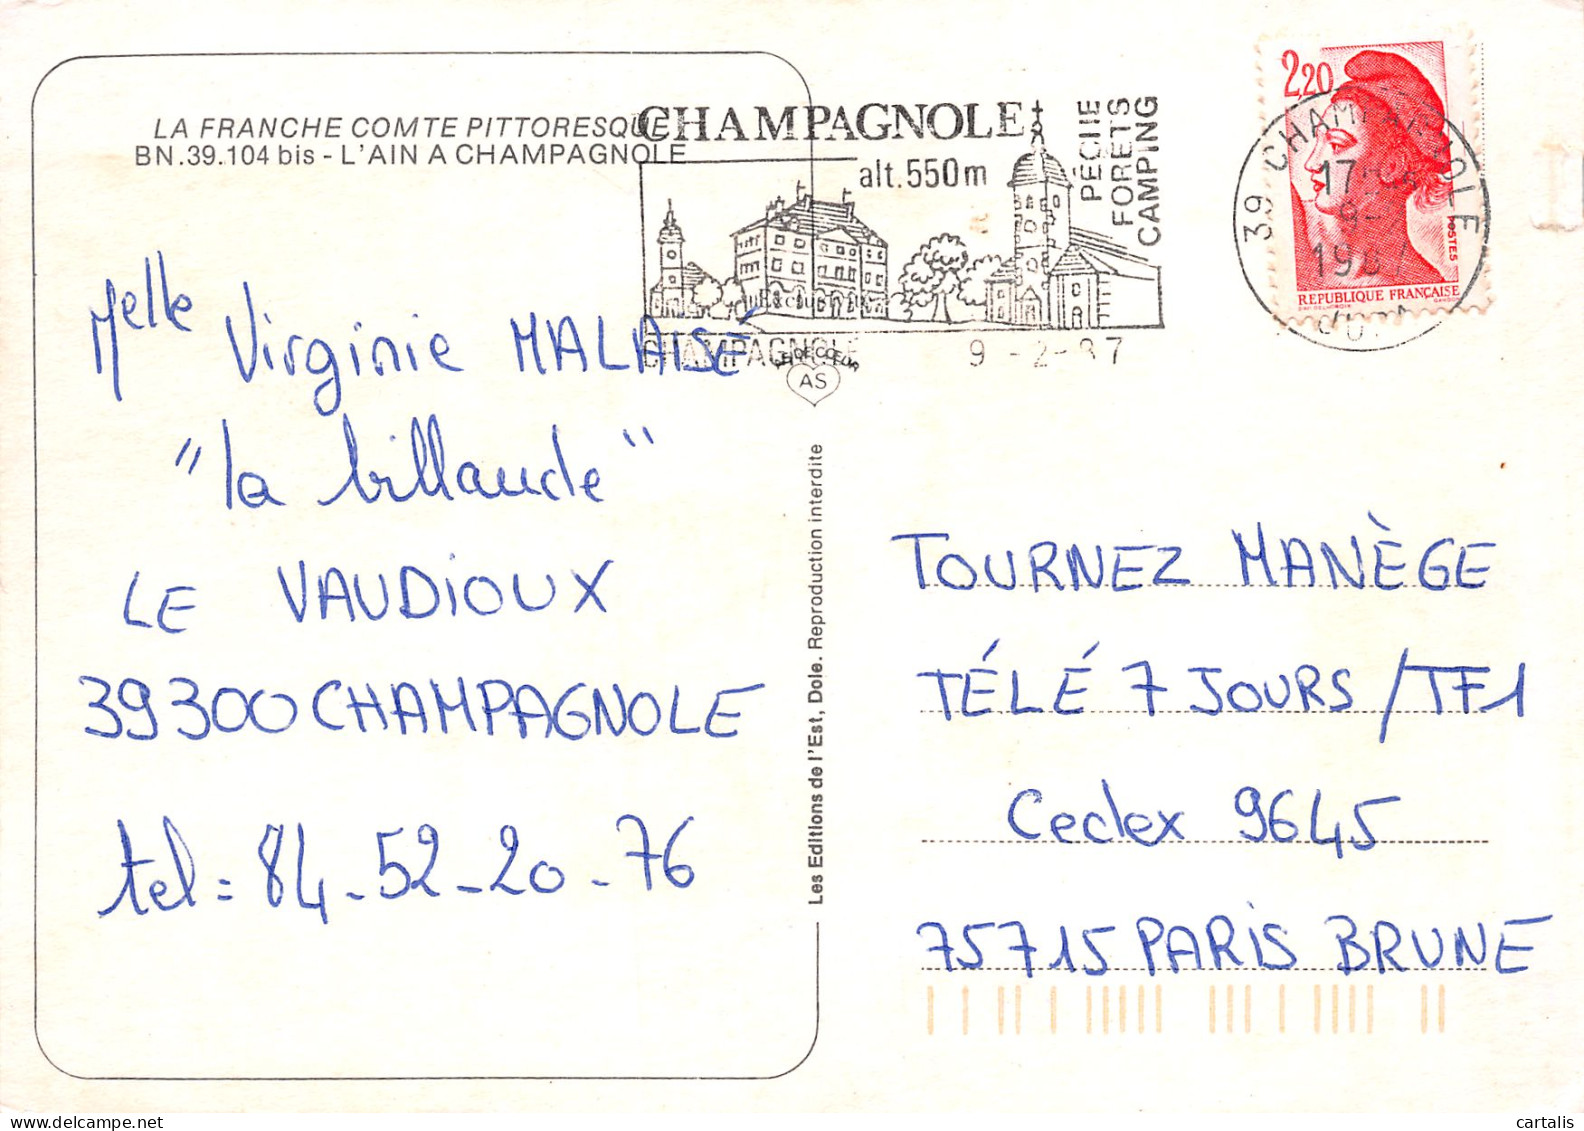 LA FRANCHE COMTE PITTORESQUE
BN.39.104 bis - L'AIN A CHAMPAGNOLE
CHAMPAGNOLE
alt.550m
PÊCHE
FORETS
CAMPING
CHAMPAGNOLE
9 - 2 - 87
2,20
POSTES
REPUBLIQUE FRANÇAISE
39 CHAMPAGNOLE
1987
JURA
AS
Melle Virginie MALAISÉ
"la billaude"
LE VAUDIOUX
39300 CHAMPAGNOLE
tel = 84-52-20-76
Les Editions de l'Est, Dole. Reproduction interdite
TOURNEZ MANÈGE
TÉLÉ 7 JOURS / TF1
Cedex 9645
75715 PARIS BRUNE
cartalis